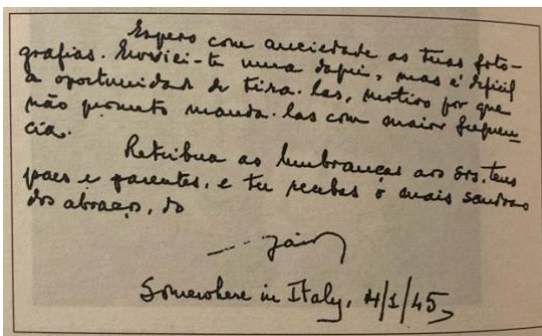 Espero com anciedade as tuas foto-
grafias. Enviei-te uma daqui, mas é dificil
a oportunidade de tira-las, motivo por que
não prometo manda-las com maior frequen-
cia.
Retribua as lembranças aos srs. teus
paes e parentes, e tu recebas o mais saudoso
dos abraços, do
Somewhere in Italy, 4/1/45,